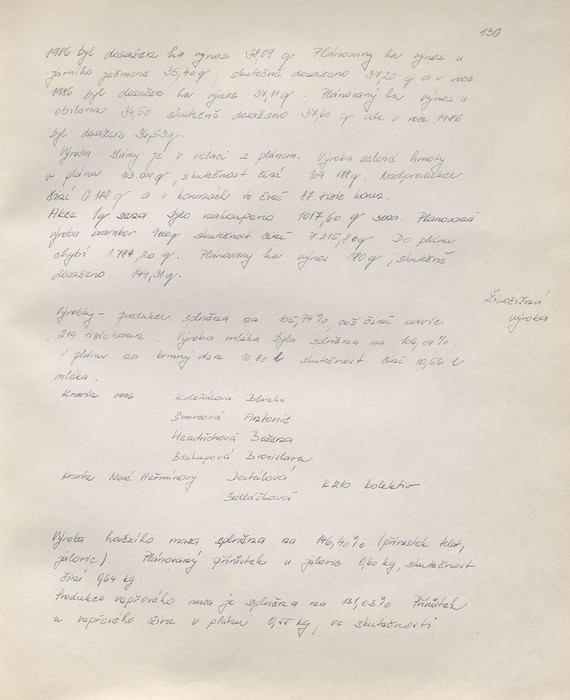 136
1986 byl dosažen ha výnos 38,09 q. Plánovaný ha výnos u
jarního ječmene 35,40 q, skutečně dosaženo 37,20 q a v roce
1986 byl dosažen ha výnos 37,11 q. Plánovaný ha výnos u
obilovin 34,50 skutečně dosaženo 37,60 q ale v roce 1986
byl dosažen 36,53 q.
Výroba slámy je v relaci s plánem. Výroba zelené hmoty
v plánu 103.000 q, skutečnost činí 109 178 q. Nadprodukce
činí 6 178 q a v korunách to činí 87 tisíc korun.
Akce 1q sena bylo nakoupeno 1017,60 q sena. Plánovaná
výroba brambor 9000 q skutečnost činí 7 215,80 q Do plánu
chybí 1.784,20 q. Plánovaný ha výnos 180 q, skutečně
dosaženo 144,31 q.
Živočišná
výroba
Výrobky - produkce splněna na 105,74%, což činí navíc
214 tisíc korun. Výroba mléka byla splněna na 106,04%.
V plánu na krmný den 10,20 l skutečnost činí 10,56 l
mléka.
Kravín 1096 Koleňáková Blanka
Šmírová Antonie
Headrichová Božena
Biskupová Bronislava
Kravín Nové Heřmínovy Dostálová
Sedláčková KZIO kolektiv
Výroba hovězího masa splněna na 146,40% (přírůstek telat,
jalovic). Plánovaný přírůstek u jalovic 0,60 kg, skutečnost
činí 0,64 kg.
Produkce vepřového masa je splněna na 131,03% Přírůstek
u vepřového žíru v plánu 0,55 kg, ve skutečnosti